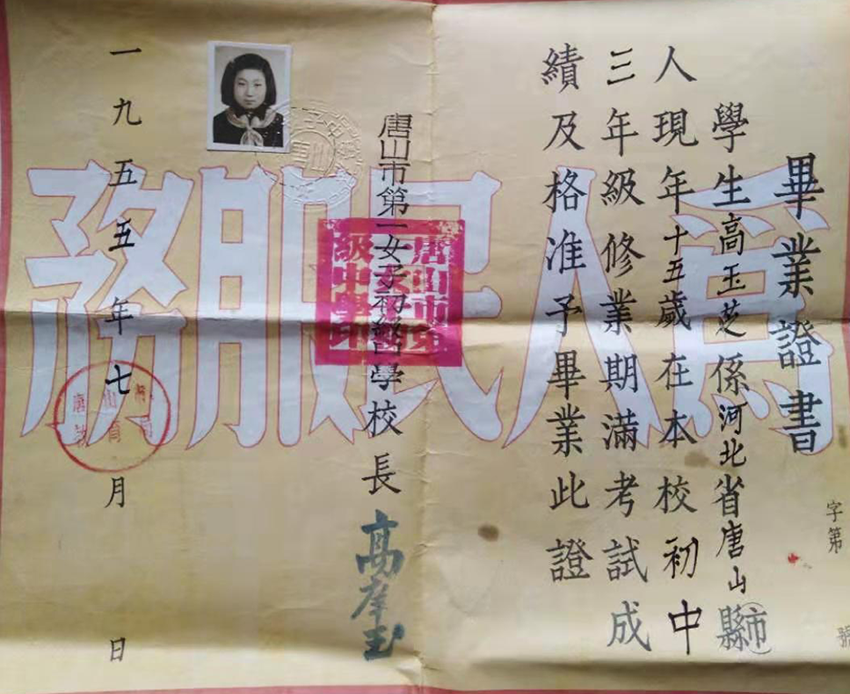 畢業證書
字第
號
學生高玉芝係河北省唐山縣市
人現年十五歲在本校初中
三年級修業期滿考試成
績及格准予畢業此證
唐山市第一女子初級中學校長
一九五五年七月 日
為人民服務